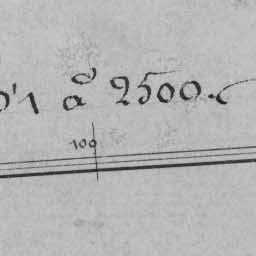 D'1 à 2500.
100